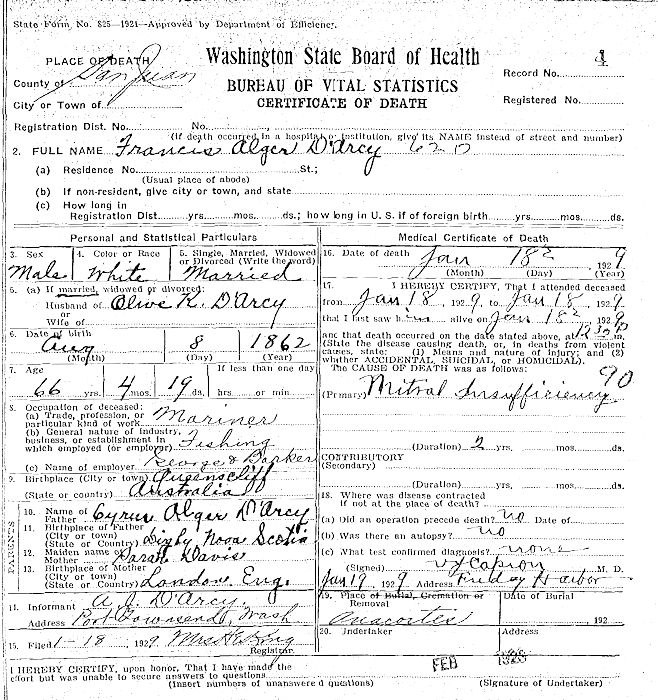 State Form No. 825—1921—Approved by Department of Efficiency.
PLACE OF DEATH
Washington State Board of Health
County of San Juan
Record No.
BUREAU OF VITAL STATISTICS
City or Town of
CERTIFICATE OF DEATH
Registered No.
Registration Dist. No. No.
(If death occurred in a hospital or institution, give its NAME instead of street and number)
2. FULL NAME Francis Alger D'Arcy 620
(a) Residence No. St.;
(Usual place of abode)
(b) If non-resident, give city or town, and state
(c) How long in
Registration Dist. yrs. mos. ds.; how long in U. S. if of foreign birth yrs. mos. ds.
Personal and Statistical Particulars
3. Sex
Male
4. Color or Race
White
5. Single, Married, Widowed
or Divorced (Write the word)
Married
6. (a) If married, widowed or divorced:
Husband of Olive K. D'Arcy
or
Wife of
6. Date of birth
Aug 8 1862
(Month) (Day) (Year)
7. Age
If less than one day
66 yrs. 4 mos. 19 ds. hrs. or min.
8. Occupation of deceased:
(a) Trade, profession, or
particular kind of work Mariner
(b) General nature of Industry,
business, or establishment in
which employed (or employer) Fishing
(c) Name of employer George & Barker
9. Birthplace (City or town) Queenscliff
(State or country) Australia
PARENTS
10. Name of
Father Cyrus Alger D'Arcy
11. Birthplace of Father
(City or town)
(State or Country) Digby Nova Scotia
12. Maiden name of
Mother Sarah Davis
13. Birthplace of Mother
(City or town)
(State or Country) London Eng.
14. Informant A. J. D'Arcy
Address Port Townsend, Wash
15. Filed 1-18 1929 Mrs King
Registrar
I HEREBY CERTIFY, upon honor, That I have made the
effort but was unable to secure answers to questions
(Insert numbers of unanswered questions)
Medical Certificate of Death
16. Date of death
Jan 18 1929
(Month) (Day) (Year)
17. I HEREBY CERTIFY, That I attended deceased
from Jan 18, 1929 to Jan 18, 1929
that I last saw him alive on Jan 18 1929
and that death occurred on the date stated above, at m.
(State the disease causing death, or, in deaths from violent
causes, state: (1) Means and nature of injury; and (2)
whether ACCIDENTAL, SUICIDAL, or HOMICIDAL).
The CAUSE OF DEATH was as follows: 90
(Primary) Mitral Insufficiency
(Duration) 2 yrs. mos. ds.
CONTRIBUTORY
(Secondary)
(Duration) yrs. mos. ds.
18. Where was disease contracted
if not at the place of death?
(a) Did an operation precede death? no Date of
(b) Was there an autopsy? no
(c) What test confirmed diagnosis? none
(Signed) V J Capron M. D.
Jan 19 1929 Address Friday Harbor
19. Place of Burial, Cremation or
Removal
Anacortes
Date of Burial
192
20. Undertaker
Address
FEB
(Signature of Undertaker)